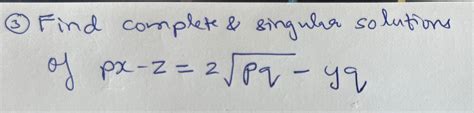 ③ Find complete & singular solutions
of px-z = 2√pq - yq